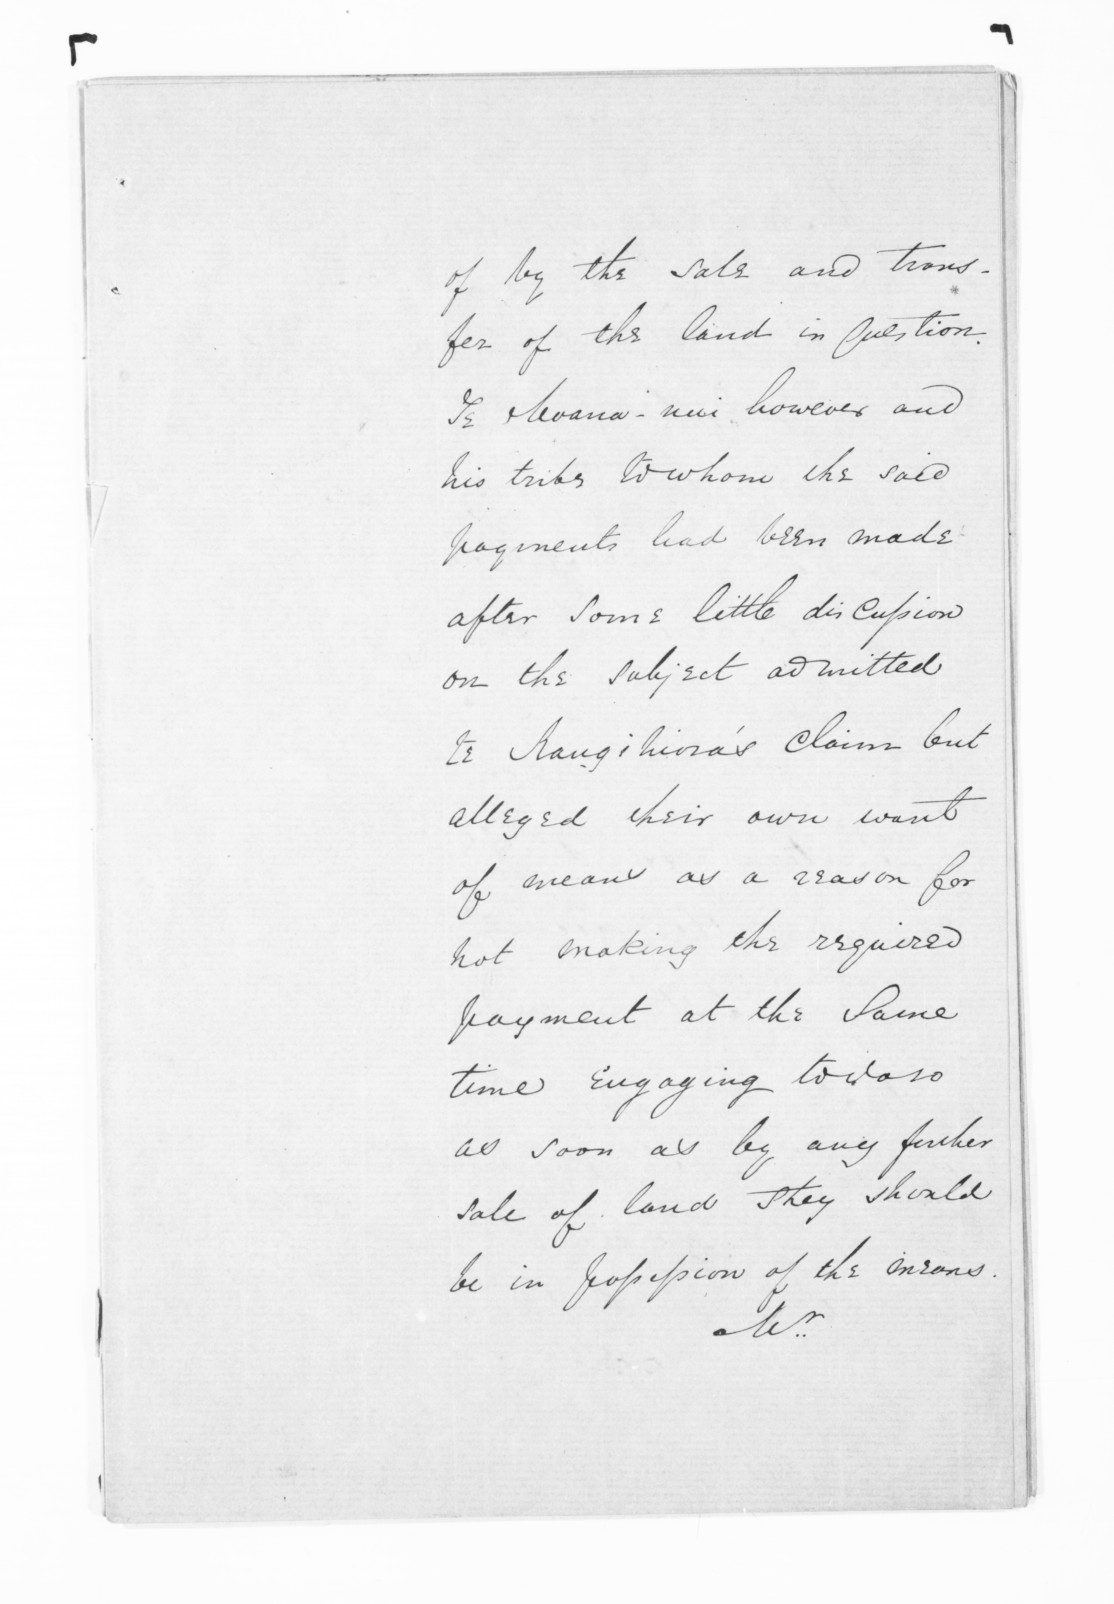 of by the sale and trans-
fer of the land in question.
Te Moana-nui however and
his tribe to whom the said
payments had been made
after some little discussion
on the subject admitted
te Rangihiroa's claim but
alleged their own want
of means as a reason for
not making the required
payment at the same
time engaging to do so
as soon as by any further
sale of land they should
be in possession of the means.
Mr.